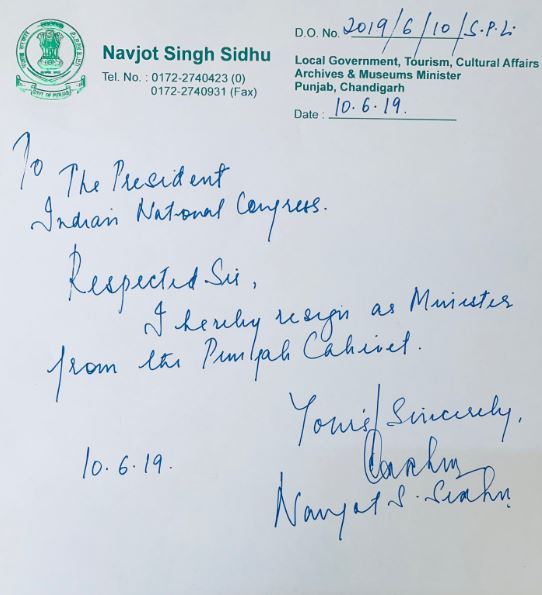 Navjot Singh Sidhu
Tel. No. : 0172-2740423 (O)
0172-2740931 (Fax)
D.O. No. 2019/6/10/S.P.L.
Local Government, Tourism, Cultural Affairs
Archives & Museums Minister
Punjab, Chandigarh
Date : 10.6.19.
To
The President
Indian National Congress.
Respected Sir,
I hereby resign as Minister
from the Punjab Cabinet.
Yours Sincerely,
10.6.19.
Navjot S. Sidhu